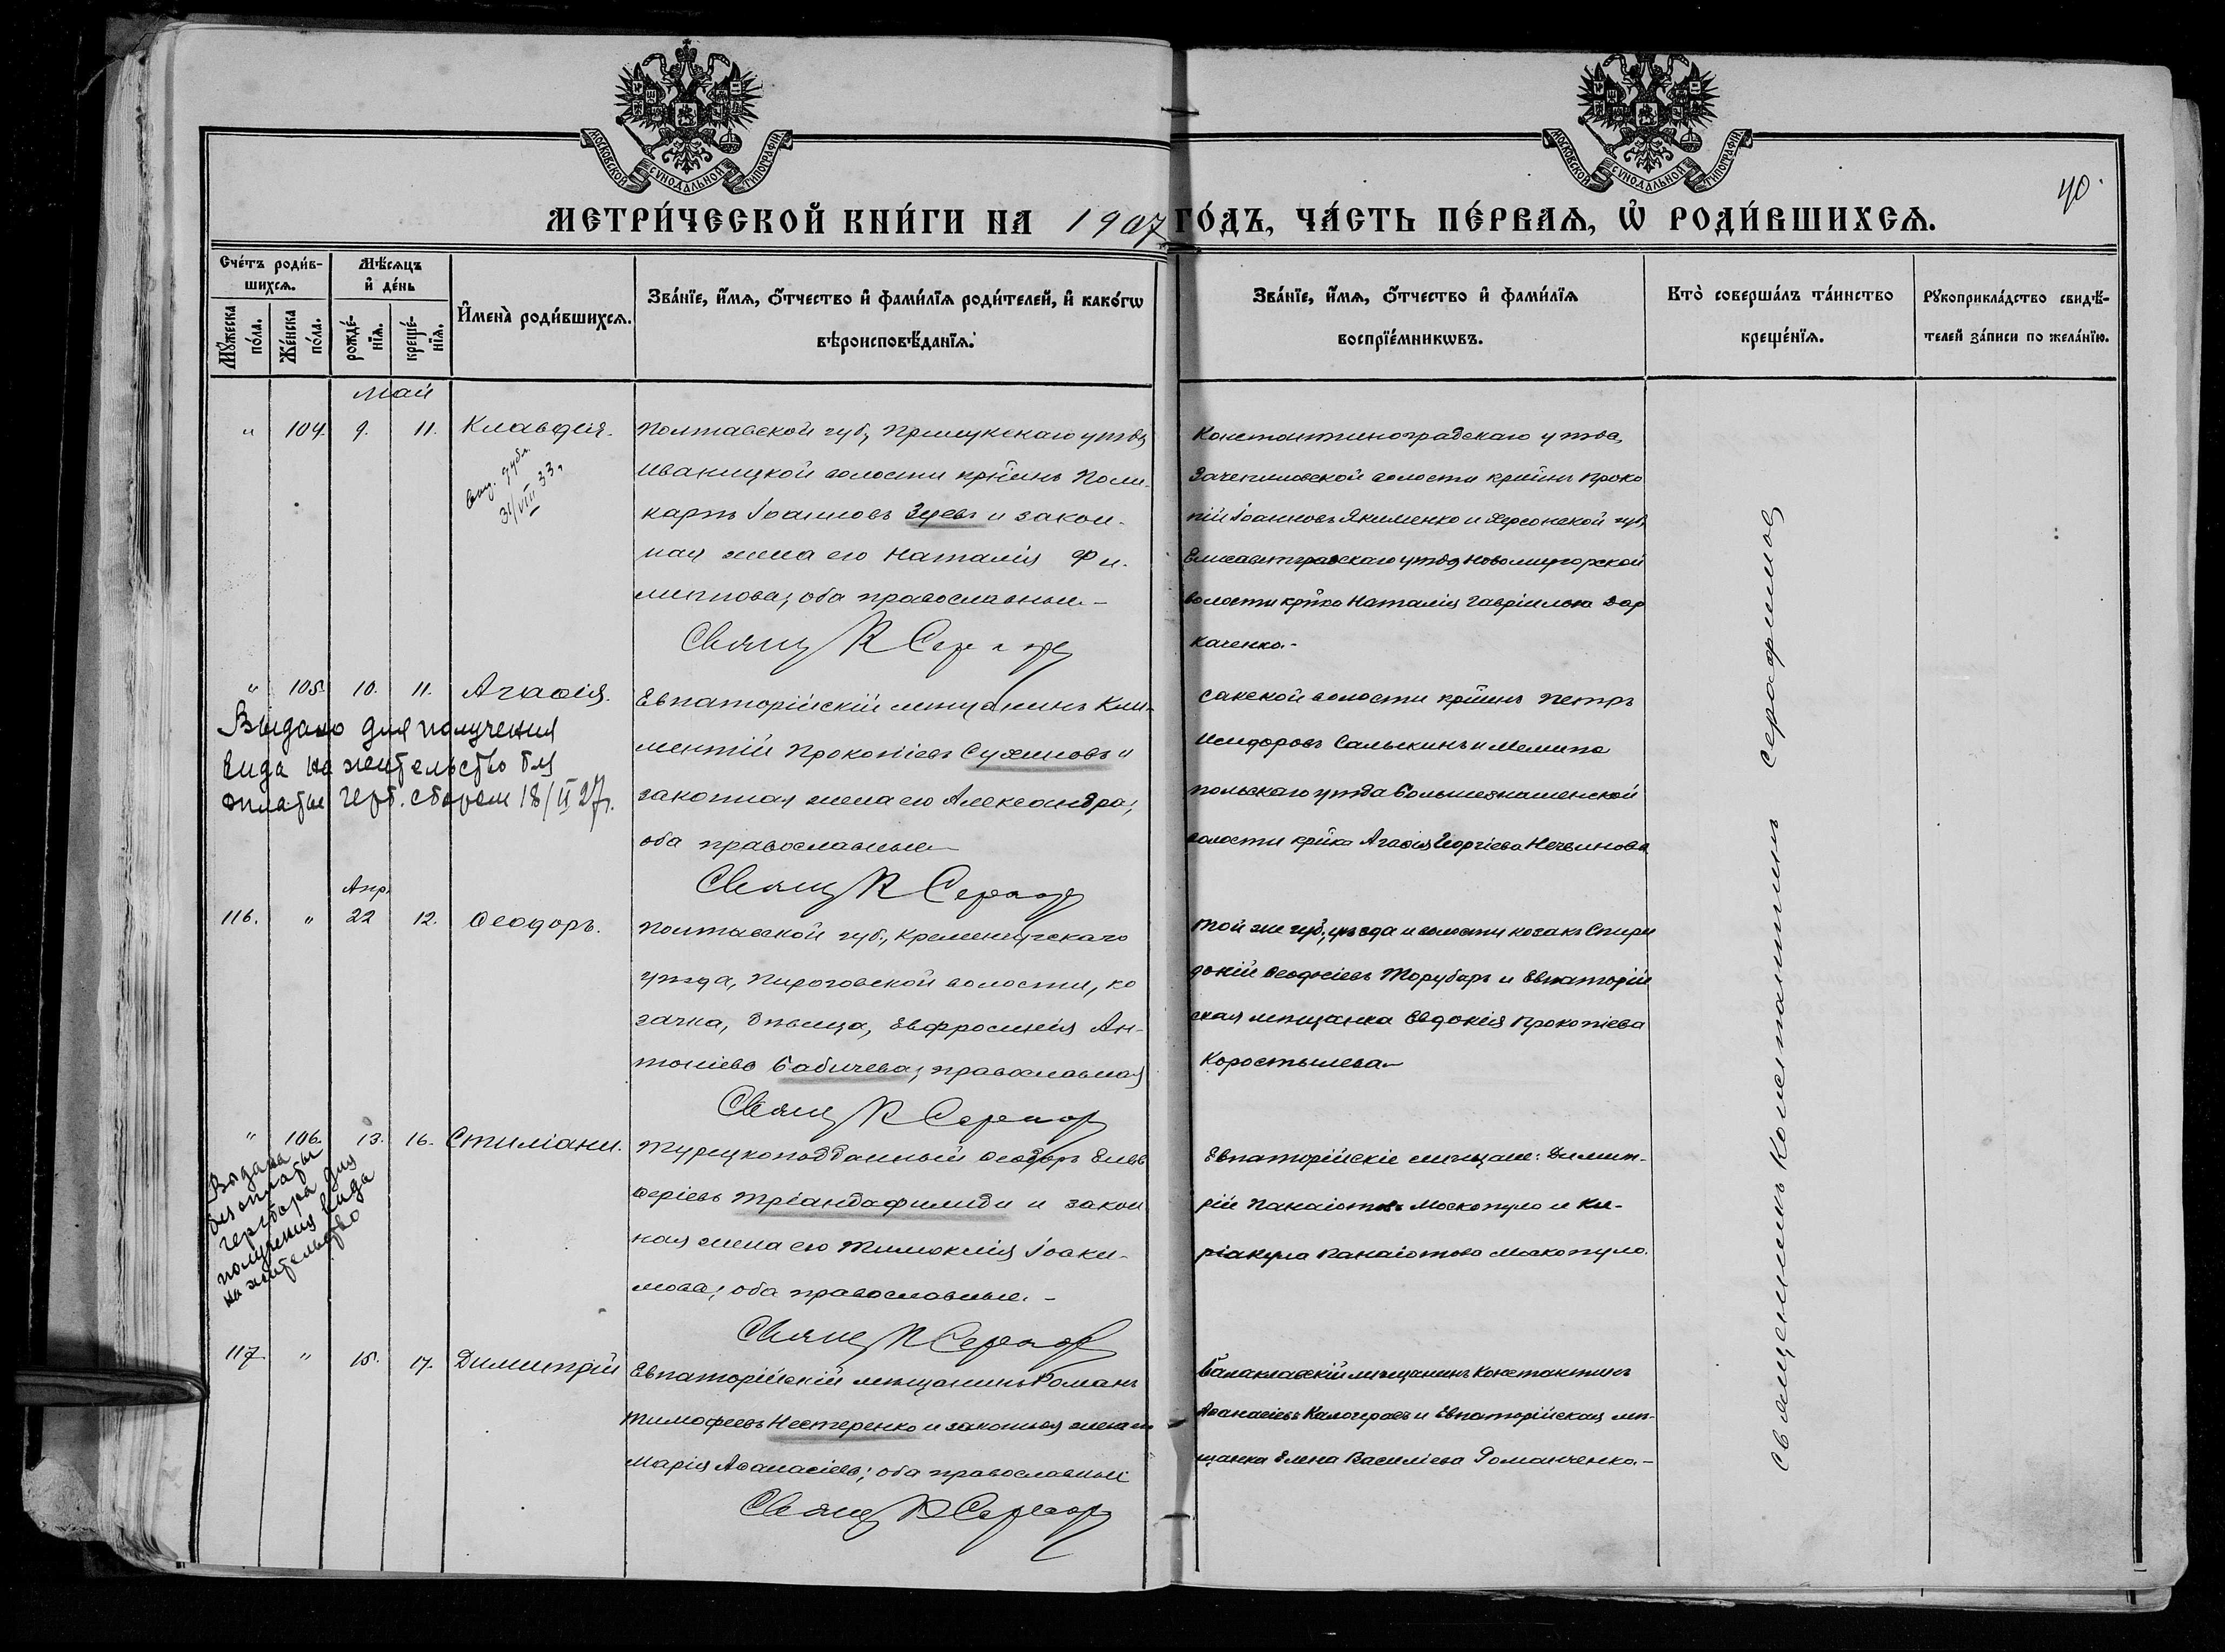 МОСКОВСКОЙ СѴНОДАЛЬНОЙ ТИПОГРАФІИ
МОСКОВСКОЙ СѴНОДАЛЬНОЙ ТИПОГРАФІИ
40.
МЕТРИ́ЧЕСКОЙ КНИ́ГИ НА 1907 ГО́ДЪ, ЧА́СТЬ ПЕ́РВАѦ, Ѡ҆ РОДИ́ВШИХСѦ.
Сче́тъ роди́в-
шихсѧ.
Мꙋ́жеска по́ла.
Же́нска по́ла.
Мѣ́сѧцъ
и҆ де́нь
рожде́-нїѧ.
креще́-нїѧ.
И҆мена̀ роди́вшихсѧ.
Зва́нїе, и҆́мѧ, ѻ҆́тчество и҆ фами́лїѧ роди́телей, и҆ како́гѡ
вѣроисповѣ́данїѧ.
Зва́нїе, и҆́мѧ, ѻ҆́тчество и҆ фами́лїѧ
воспрїе́мникѡвъ.
Кто̀ соверша́лъ та́инство
креще́нїѧ.
Рꙋкоприкла́дство свидѣ́-
телей за́писи по жела́нїю.
Май
" 104. 9. 11. Клавдія.
31/VIII 33,
Полтавской губ., Прилукскаго уѣзда
Иваницкой волости кр-нинъ Поли-
карпъ Іоанновъ Зуевъ и закон-
ная жена его Наталія Фи-
липпова; оба православные.-
Свящ К Сераф
Константиноградскаго уѣзда,
Зачепиловской волости кр-нинъ Проко
пій Іоанновъ Якименко и Херсонской губ,
Елисаветградскаго уѣзда Новомиргородской
волости кр-нка Наталія Гавріилова Дер
каченко.-
" 105. 10. 11. Агаѳія.
Выдано для получения
вида на жительство без
оплаты герб. сбором 18/II 27г.
Евпаторійскій мѣщанинъ Кли-
ментій Прокопіевъ Сухиновъ и
законная жена его Александра;
оба православные
Свящ К Сераф
Сакской волости кр-нинъ Петръ
Исидоровъ Салыкинъ и Мелито
польскаго уѣзда Большезнаменской
волости кр-нка Агаѳія Георгіева Нечвинова
Апр.
116. " 22 12. Ѳеодоръ.
Полтавской губ., Кременчугскаго
уѣзда, Пироговской волости, ко
зачка, дѣвица, Евфросинія Ан-
тоніева Бабичева; православная
Свящ К Сераф
Той же губ., уѣзда и волости козакъ Спири
доній Ѳеодосіевъ Торубаръ и Евпаторій
ская мѣщанка Евдокія Прокопіева
Коростылева
" 106. 13. 16. Стиліани.
Выдана
без оплаты
гербсбора для
получения вида
на жительство
Турецкоподданный Ѳеодоръ Елев
ѳеріевъ Тріандафилиди и закон
ная жена его Тимоклія Іоаки-
мова; оба православные.-
Свящ К Сераф
Евпаторійскіе мѣщане: Димит-
рій Панаіотовъ Москопуло и Ки-
ріакула Панаіотова Москопуло.
117. " 15. 17. Димитрій
Евпаторійскій мѣщанинъ Романъ
Тимофеевъ Нестеренко и законная жена его
Марія Аѳанасіева; оба православные
Свящ К Сераф
Балаклавскій мѣщанинъ Константинъ
Аѳанасіевъ Калогерасъ и Евпаторійская мѣ-
щанка Елена Василіева Романченко.-
Священникъ Константинъ Серафимовъ